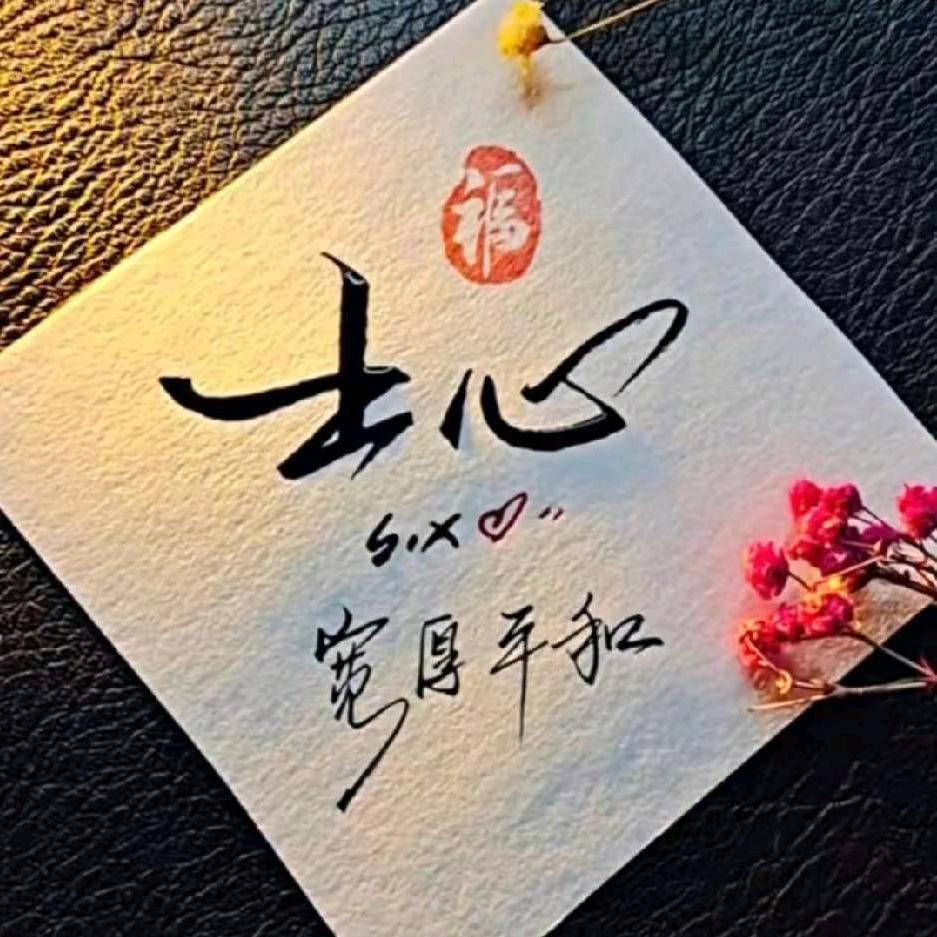 福
士心
s.x♡
宽厚平和